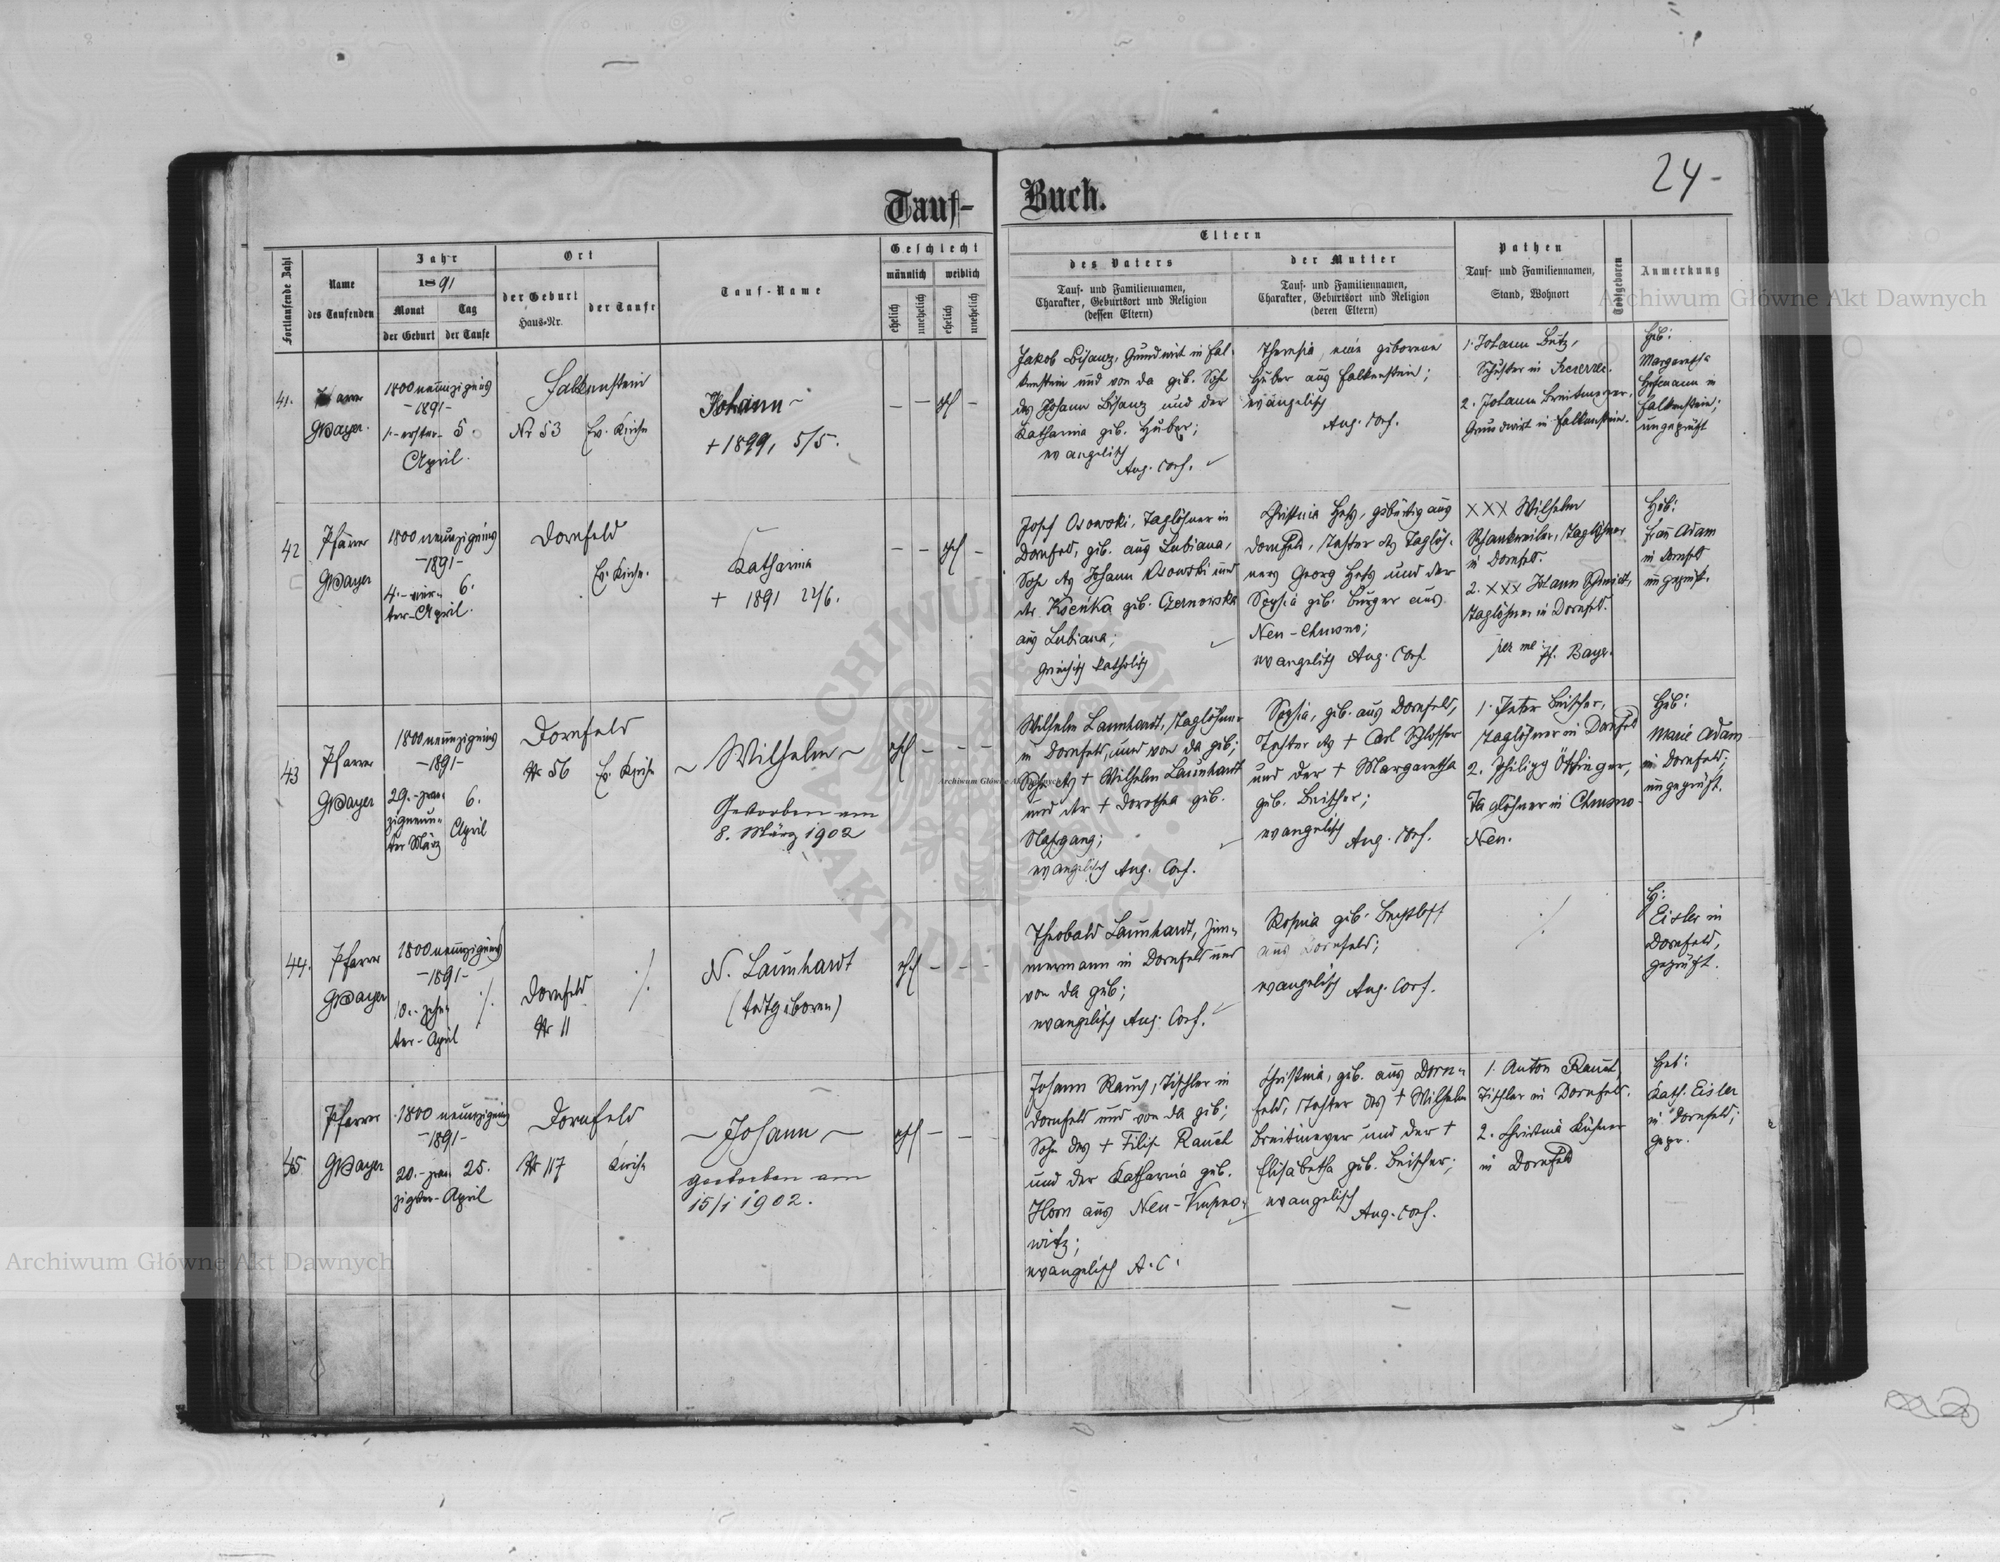 24-
Tauf-Buch.
Fortlaufende Zahl
Name
des Taufenden
Jahr
1891
Monat
Tag
der Geburt
der Taufe
Ort
der Geburt
Haus-Nr.
der Taufe
Tauf-Name
Geschlecht
männlich
weiblich
ehelich
unehelich
ehelich
unehelich
Eltern
des Vaters
Tauf- und Familiennamen,
Charakter, Geburtsort und Religion
(dessen Eltern)
der Mutter
Tauf- und Familiennamen,
Charakter, Geburtsort und Religion
(deren Eltern)
Pathen
Tauf- und Familiennamen,
Stand, Wohnort
Todtgeboren
Anmerkung
41.
GBayer.
1800 neunzigeins
-1891-
1.-erster-
April.
5
Falkenstein
Nr 53
Ev. Kirche
Johann
+ 1899, 5/5.
ehl
Jakob Bisanz, Grundwirt in Fal-
kenstein und von da geb. Sohn
des Johann Bisanz und der
Katharina geb. Huber;
evangelisch
Aug. Conf.
Theresia, eine geborene
Huber aus Falkenstein;
evangelisch
Aug. Conf.
1. Johann Butz,
Schuster in
2. Johann Breitmeyer,
Grundwirt in Falkenstein.
Heb:
Margaretha
Hofmann in
Falkenstein;
ungeprüft
42
Pfarrer
GBayer
1800 neunzigeins
-1891-
4.-vier-
ter-April.
6.
Dornfeld
Ev. Kirche.
Katharina
+ 1891 22/6.
ehl
Josef Osowski, Taglöhner in
Dornfeld, geb. aus Lubiana,
Sohn des Johann Osowski und
der Ksenka geb. Czernowska
aus Lubiana;
griechisch katholisch
Christina Hetz, gebürtig aus
Dornfeld, Tochter des Taglöh-
ners Georg Hetz und der
Sophia geb. Burger aus
Neu-Chrusno;
evangelisch Aug. Conf
XXX Wilhelm
Schankweiler, Taglöhner
in Dornfeld.
2. XXX Johann Schmidt,
Taglöhner in Dornfeld.
per me Pf. Bayer.
Heb:
Frau Adam
in Dornfeld
ungeprüft.
43
Pfarrer
GBayer
1800 neunzigeins
-1891-
29.-zwan-
zigneun-
ter März
6.
April
Dornfeld
Nr 56
Ev. Kirche
Wilhelm
Gestorben am
8. März 1902
ehl
Wilhelm Launhardt, Taglöhner
in Dornfeld, und von da geb;
Sohn des + Wilhelm Launhardt
und der + Dorothea geb.
Nahrgang;
evangelisch Aug. Conf.
Sophia, geb. aus Dornfeld,
Tochter des + Carl Schlosser
und der + Margaretha
geb. Beischer;
evangelisch
Aug. Conf.
1. Peter Beischer,
Taglöhner in Dornfeld
2. Philipp Öhlinger,
Taglöhner in Chrusno
Neu.
Heb:
Marie Adam
in Dornfeld;
ungeprüft.
44.
Pfarrer
GBayer
1800 neunzigeins
-1891-
10.-zehn-
ter-April
./.
Dornfeld
Nr 11
./.
N. Launhardt
(todtgeboren)
ehl
Theobald Launhardt, Zim-
mermann in Dornfeld und
von da geb;
evangelisch Aug. Conf.
Rosina geb.
aus Dornfeld;
evangelisch Aug. Conf.
./.
H:
Eisler in
Dornfeld,
geprüft.
45.
Pfarrer
GBayer
1800 neunzigeins
-1891-
20.-zwan-
zigster-April
25.
Dornfeld
Nr 117
Kirche
Johann
gestorben am
15/1 1902.
ehl
Johann Rauch, Tischler in
Dornfeld und von da geb;
Sohn des + Filip Rauch
und der Katharina geb.
Horn aus Neu-Kupno-
witz;
evangelisch A.C.
Christina, geb. aus Dorn-
feld, Tochter des + Wilhelm
Breitmeyer und der +
Elisabetha geb. Beischer;
evangelisch
Aug. Conf.
1. Anton Rauch,
Tischler in Dornfeld.
2. Christina Kühner
in Dornfeld
Heb:
Kath. Eisler
in Dornfeld;
gepr.
Archiwum Główne Akt Dawnych
Archiwum Główne Akt Dawnych
Archiwum Główne Akt Dawnych